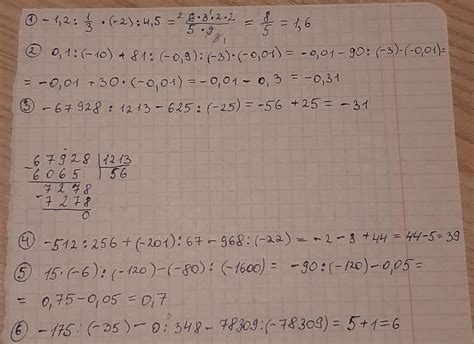 ① -1,2 : 1/3 · (-2) : 4,5 = 6·3·2·2/5·9 = 8/5 = 1,6
② 0,1:(-10) + 81:(-0,9):(-3)·(-0,01) = -0,01-90:(-3)·(-0,01)=
= -0,01 + 30·(-0,01) = -0,01 - 0,3 = -0,31
③ -67928:1213 - 625:(-25) = -56 + 25 = -31
-67928 | 1213
6065 | 56
-7278
7278
0
④ -512:256 + (-201):67 - 968:(-22) = -2 - 3 + 44 = 44-5 = 39
⑤ 15·(-6):(-120) - (-80):(-1600) = -90:(-120) - 0,05 =
= 0,75 - 0,05 = 0,7
⑥ -175:(-35) - 0:348 - 78309:(-78309) = 5+1=6